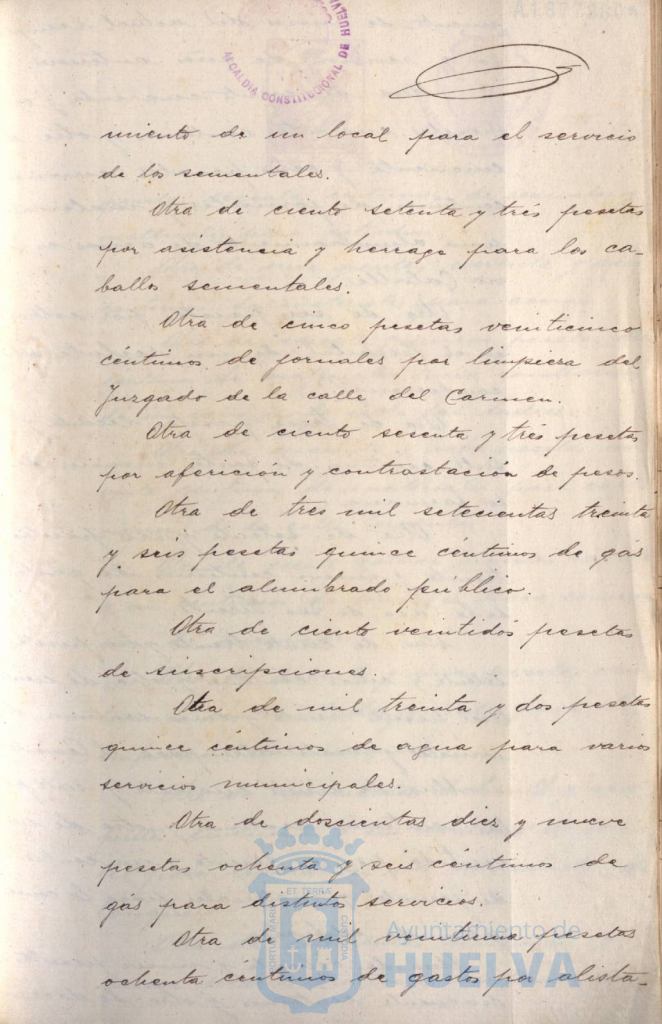 ALCALDIA CONSTITUCIONAL DE HUELVA
miento de un local para el servicio
de los sementales.
Otra de ciento setenta y tres pesetas
por asistencia y herrage para los ca-
ballos sementales.
Otra de cinco pesetas veinticinco
céntimos de jornales por limpieza del
Juzgado de la calle del Carmen.
Otra de ciento sesenta y tres pesetas
por aferición y contrastación de pesos.
Otra de tres mil setecientas treinta
y seis pesetas quince céntimos de gás
para el alumbrado público.
Otra de ciento veintidós pesetas
de suscripciones.
Otra de mil treinta y dos pesetas
quince céntimos de agua para varios
servicios municipales.
Otra de doscientas diez y nueve
pesetas ochenta y seis céntimos de
gás para distintos servicios.
Otra de mil veintiuna pesetas
ochenta céntimos de gastos por alista-
PORTUS MARIS ET TERRÆ CUSTODIA
Ayuntamiento de
HUELVA